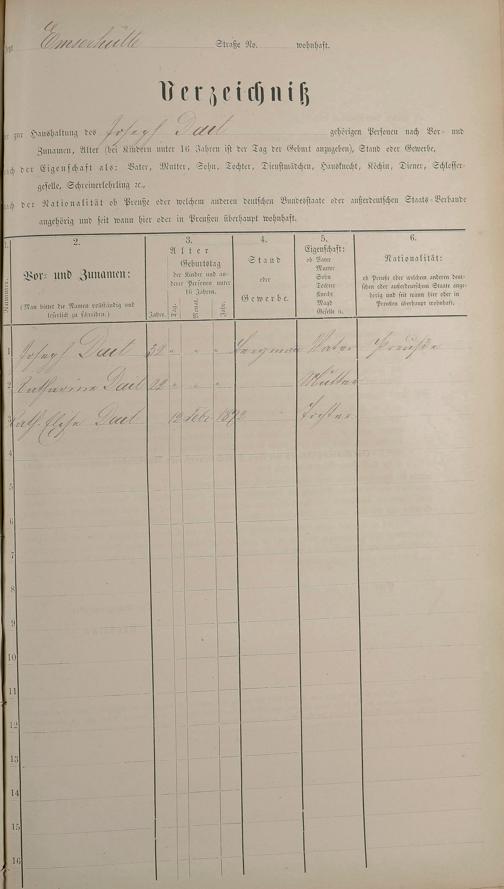 Emserhütte Straße No. wohnhaft.
Verzeichniß
zur Haushaltung des Joseph Dael gehörigen Personen nach Vor- und
Zunamen, Alter (bei Kindern unter 16 Jahren ist der Tag der Geburt anzugeben), Stand oder Gewerbe,
nach der Eigenschaft als: Vater, Mutter, Sohn, Tochter, Dienstmädchen, Hausknecht, Köchin, Diener, Schlosser-
geselle, Schreinerlehrling ec.,
nach der Nationalität ob Preuße oder welchem anderen deutschen Bundesstaate oder außerdeutschen Staats-Verbande
angehörig und seit wann hier oder in Preußen überhaupt wohnhaft.
1.
Nummer.
2.
Vor- und Zunamen:
(Man bittet die Namen vollständig und
leserlich zu schreiben.)
3.
Alter
Geburtstag
der Kinder und an-
derer Personen unter
16 Jahren.
Jahre.
Tag.
Monat.
Jahr.
4.
Stand
oder
Gewerbe.
5.
Eigenschaft:
ob Vater
Mutter
Sohn
Tochter
Knecht
Magd
Geselle ec.
6.
Nationalität:
ob Preuße oder welchem anderen deut-
schen oder außerdeutschen Staate ange-
hörig und seit wann hier oder in
Preußen überhaupt wohnhaft.
1 Joseph Dael " " " Bergmann Vater Preuße
2 Katharine Dael " " " Mutter
3 Kath. Dael 12 Febr 1872 Tochter
4
5
6
7
8
9
10
11
12
13
14
15
16